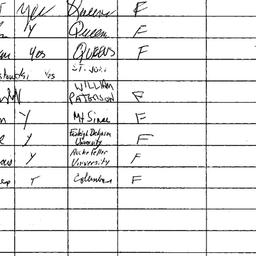 Yes Queens F
Y Queen F
Yes QUEENS F
Yes ST. JOHN
WILLIAM
PATERSON F
Y Mt Sinai F
Fairleigh Dickinson
Y University F
Rockefeller
Y University F
T Columbia F